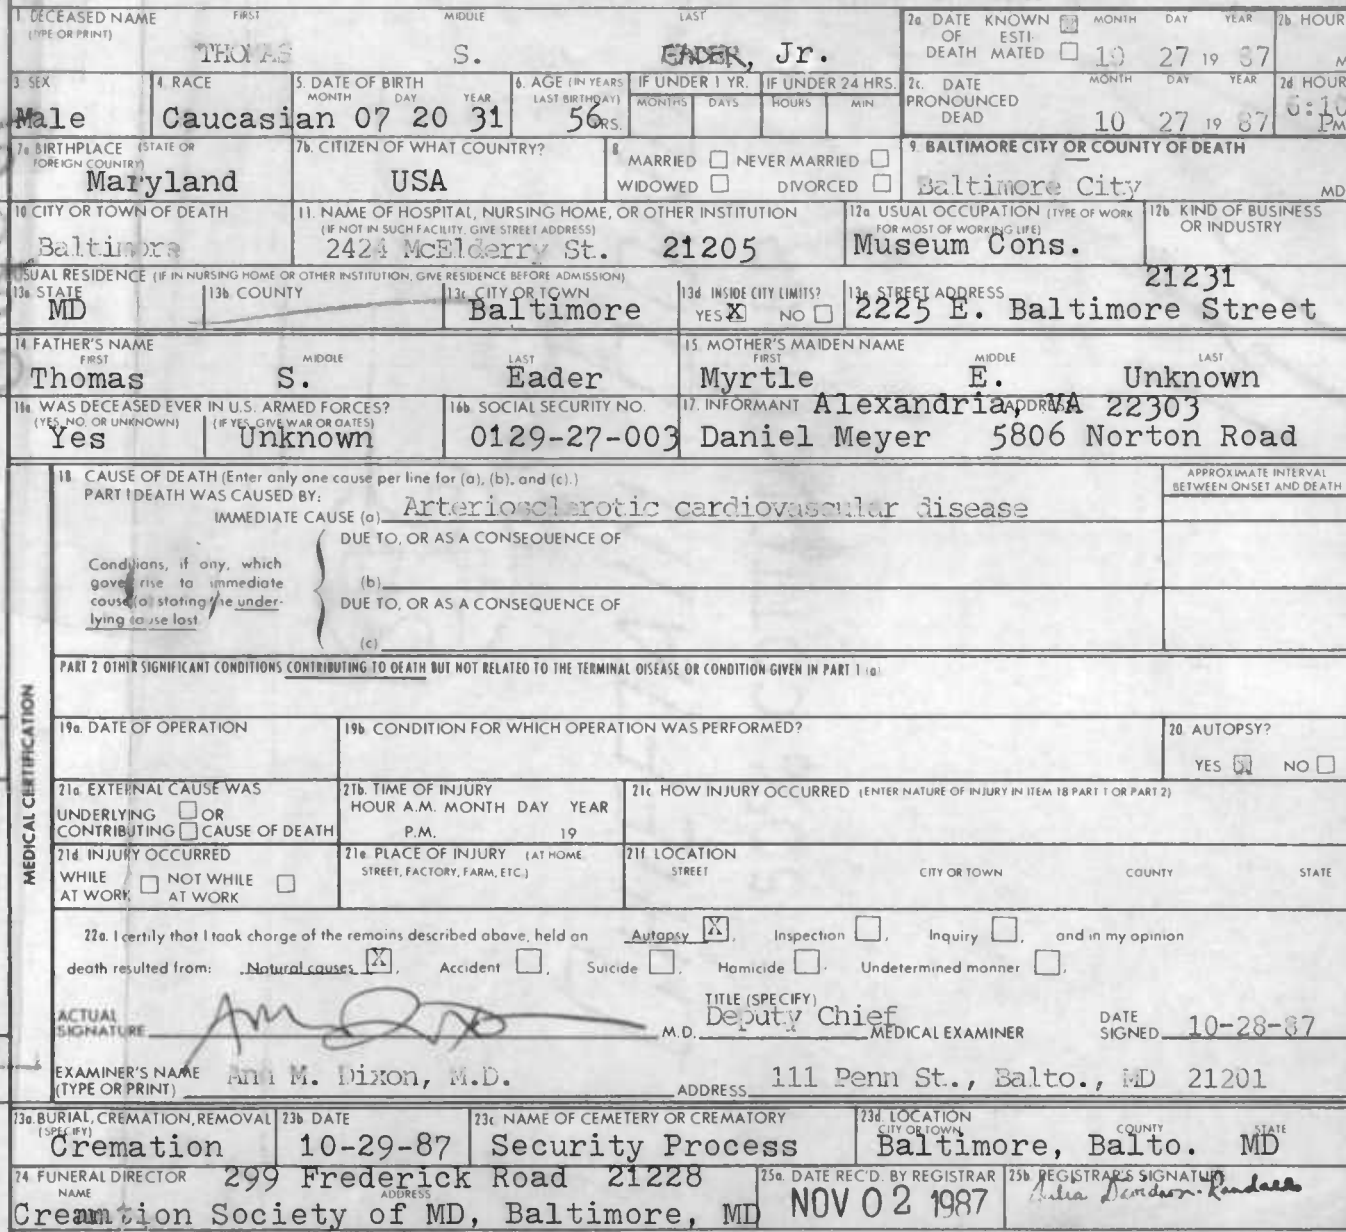 1 DECEASED NAME FIRST MIDDLE LAST
(TYPE OR PRINT)
THOMAS S. EADER, Jr.
2a DATE KNOWN MONTH DAY YEAR 2b HOUR
OF ESTI-
DEATH MATED 10 27 19 87 M
3 SEX
Male
4 RACE
Caucasian
5. DATE OF BIRTH
MONTH DAY YEAR
07 20 31
6. AGE (IN YEARS
LAST BIRTHDAY)
56 YRS.
IF UNDER 1 YR. IF UNDER 24 HRS.
MONTHS DAYS HOURS MIN
2c. DATE MONTH DAY YEAR 2d HOUR
PRONOUNCED
DEAD 10 27 19 87 6:10 PM
7a BIRTHPLACE (STATE OR
FOREIGN COUNTRY)
Maryland
7b. CITIZEN OF WHAT COUNTRY?
USA
8 MARRIED NEVER MARRIED
WIDOWED DIVORCED
9. BALTIMORE CITY OR COUNTY OF DEATH
Baltimore City MD
10 CITY OR TOWN OF DEATH
Baltimore
11. NAME OF HOSPITAL, NURSING HOME, OR OTHER INSTITUTION
(IF NOT IN SUCH FACILITY, GIVE STREET ADDRESS)
2424 McElderry St. 21205
12a USUAL OCCUPATION (TYPE OF WORK
FOR MOST OF WORKING LIFE)
Museum Cons.
12b. KIND OF BUSINESS
OR INDUSTRY
USUAL RESIDENCE (IF IN NURSING HOME OR OTHER INSTITUTION, GIVE RESIDENCE BEFORE ADMISSION)
13a STATE
MD
13b COUNTY
13c CITY OR TOWN
Baltimore
13d INSIDE CITY LIMITS?
YES X NO
13e STREET ADDRESS 21231
2225 E. Baltimore Street
14 FATHER'S NAME
FIRST MIDDLE LAST
Thomas S. Eader
15 MOTHER'S MAIDEN NAME
FIRST MIDDLE LAST
Myrtle E. Unknown
16a WAS DECEASED EVER IN U.S. ARMED FORCES?
(YES, NO, OR UNKNOWN) (IF YES, GIVE WAR OR DATES)
Yes Unknown
16b SOCIAL SECURITY NO.
0129-27-003
17. INFORMANT ADDRESS Alexandria, VA 22303
Daniel Meyer 5806 Norton Road
MEDICAL CERTIFICATION
18 CAUSE OF DEATH (Enter only one cause per line for (a), (b), and (c).)
PART I DEATH WAS CAUSED BY:
IMMEDIATE CAUSE (a) Arteriosclerotic cardiovascular disease
APPROXIMATE INTERVAL
BETWEEN ONSET AND DEATH
DUE TO, OR AS A CONSEQUENCE OF
Conditions, if any, which
gave rise to immediate
cause (a) stating the under-
lying cause last
(b)
DUE TO, OR AS A CONSEQUENCE OF
(c)
PART 2 OTHER SIGNIFICANT CONDITIONS CONTRIBUTING TO DEATH BUT NOT RELATED TO THE TERMINAL DISEASE OR CONDITION GIVEN IN PART 1 (a)
19a. DATE OF OPERATION
19b CONDITION FOR WHICH OPERATION WAS PERFORMED?
20 AUTOPSY?
YES NO
21a EXTERNAL CAUSE WAS
UNDERLYING OR
CONTRIBUTING CAUSE OF DEATH
21b. TIME OF INJURY
HOUR A.M. MONTH DAY YEAR
P.M. 19
21c HOW INJURY OCCURRED (ENTER NATURE OF INJURY IN ITEM 18 PART 1 OR PART 2)
21d INJURY OCCURRED
WHILE NOT WHILE
AT WORK AT WORK
21e PLACE OF INJURY (AT HOME
STREET, FACTORY, FARM, ETC.)
21f LOCATION
STREET CITY OR TOWN COUNTY STATE
22a. I certify that I took charge of the remains described above, held an Autopsy X, Inspection , Inquiry , and in my opinion
death resulted from: Natural causes X, Accident , Suicide , Homicide . Undetermined manner .
ACTUAL
SIGNATURE M.D.
TITLE (SPECIFY)
Deputy Chief MEDICAL EXAMINER
DATE
SIGNED 10-28-87
EXAMINER'S NAME
(TYPE OR PRINT) Ann M. Dixon, M.D.
ADDRESS 111 Penn St., Balto., MD 21201
23a. BURIAL, CREMATION, REMOVAL
(SPECIFY)
Cremation
23b DATE
10-29-87
23c NAME OF CEMETERY OR CREMATORY
Security Process
23d LOCATION
CITY OR TOWN COUNTY STATE
Baltimore, Balto. MD
24 FUNERAL DIRECTOR 299 Frederick Road 21228
NAME ADDRESS
Creamtion Society of MD, Baltimore, MD
25a. DATE REC'D. BY REGISTRAR
NOV 02 1987
25b REGISTRAR'S SIGNATURE
Julia Davidson-Randall